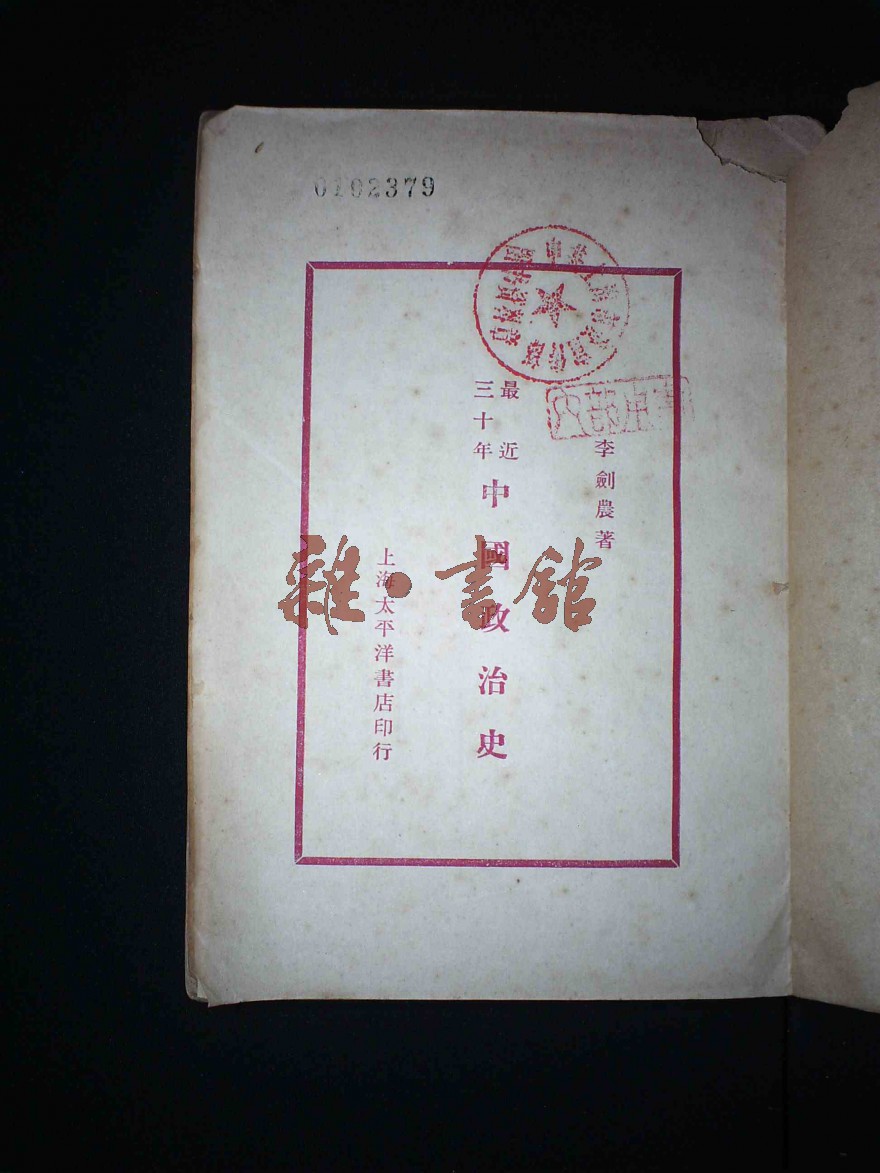 0102379
內部出售
李劍農著
最近
三十年
中國政治史
上海太平洋書店印行
雜·書館